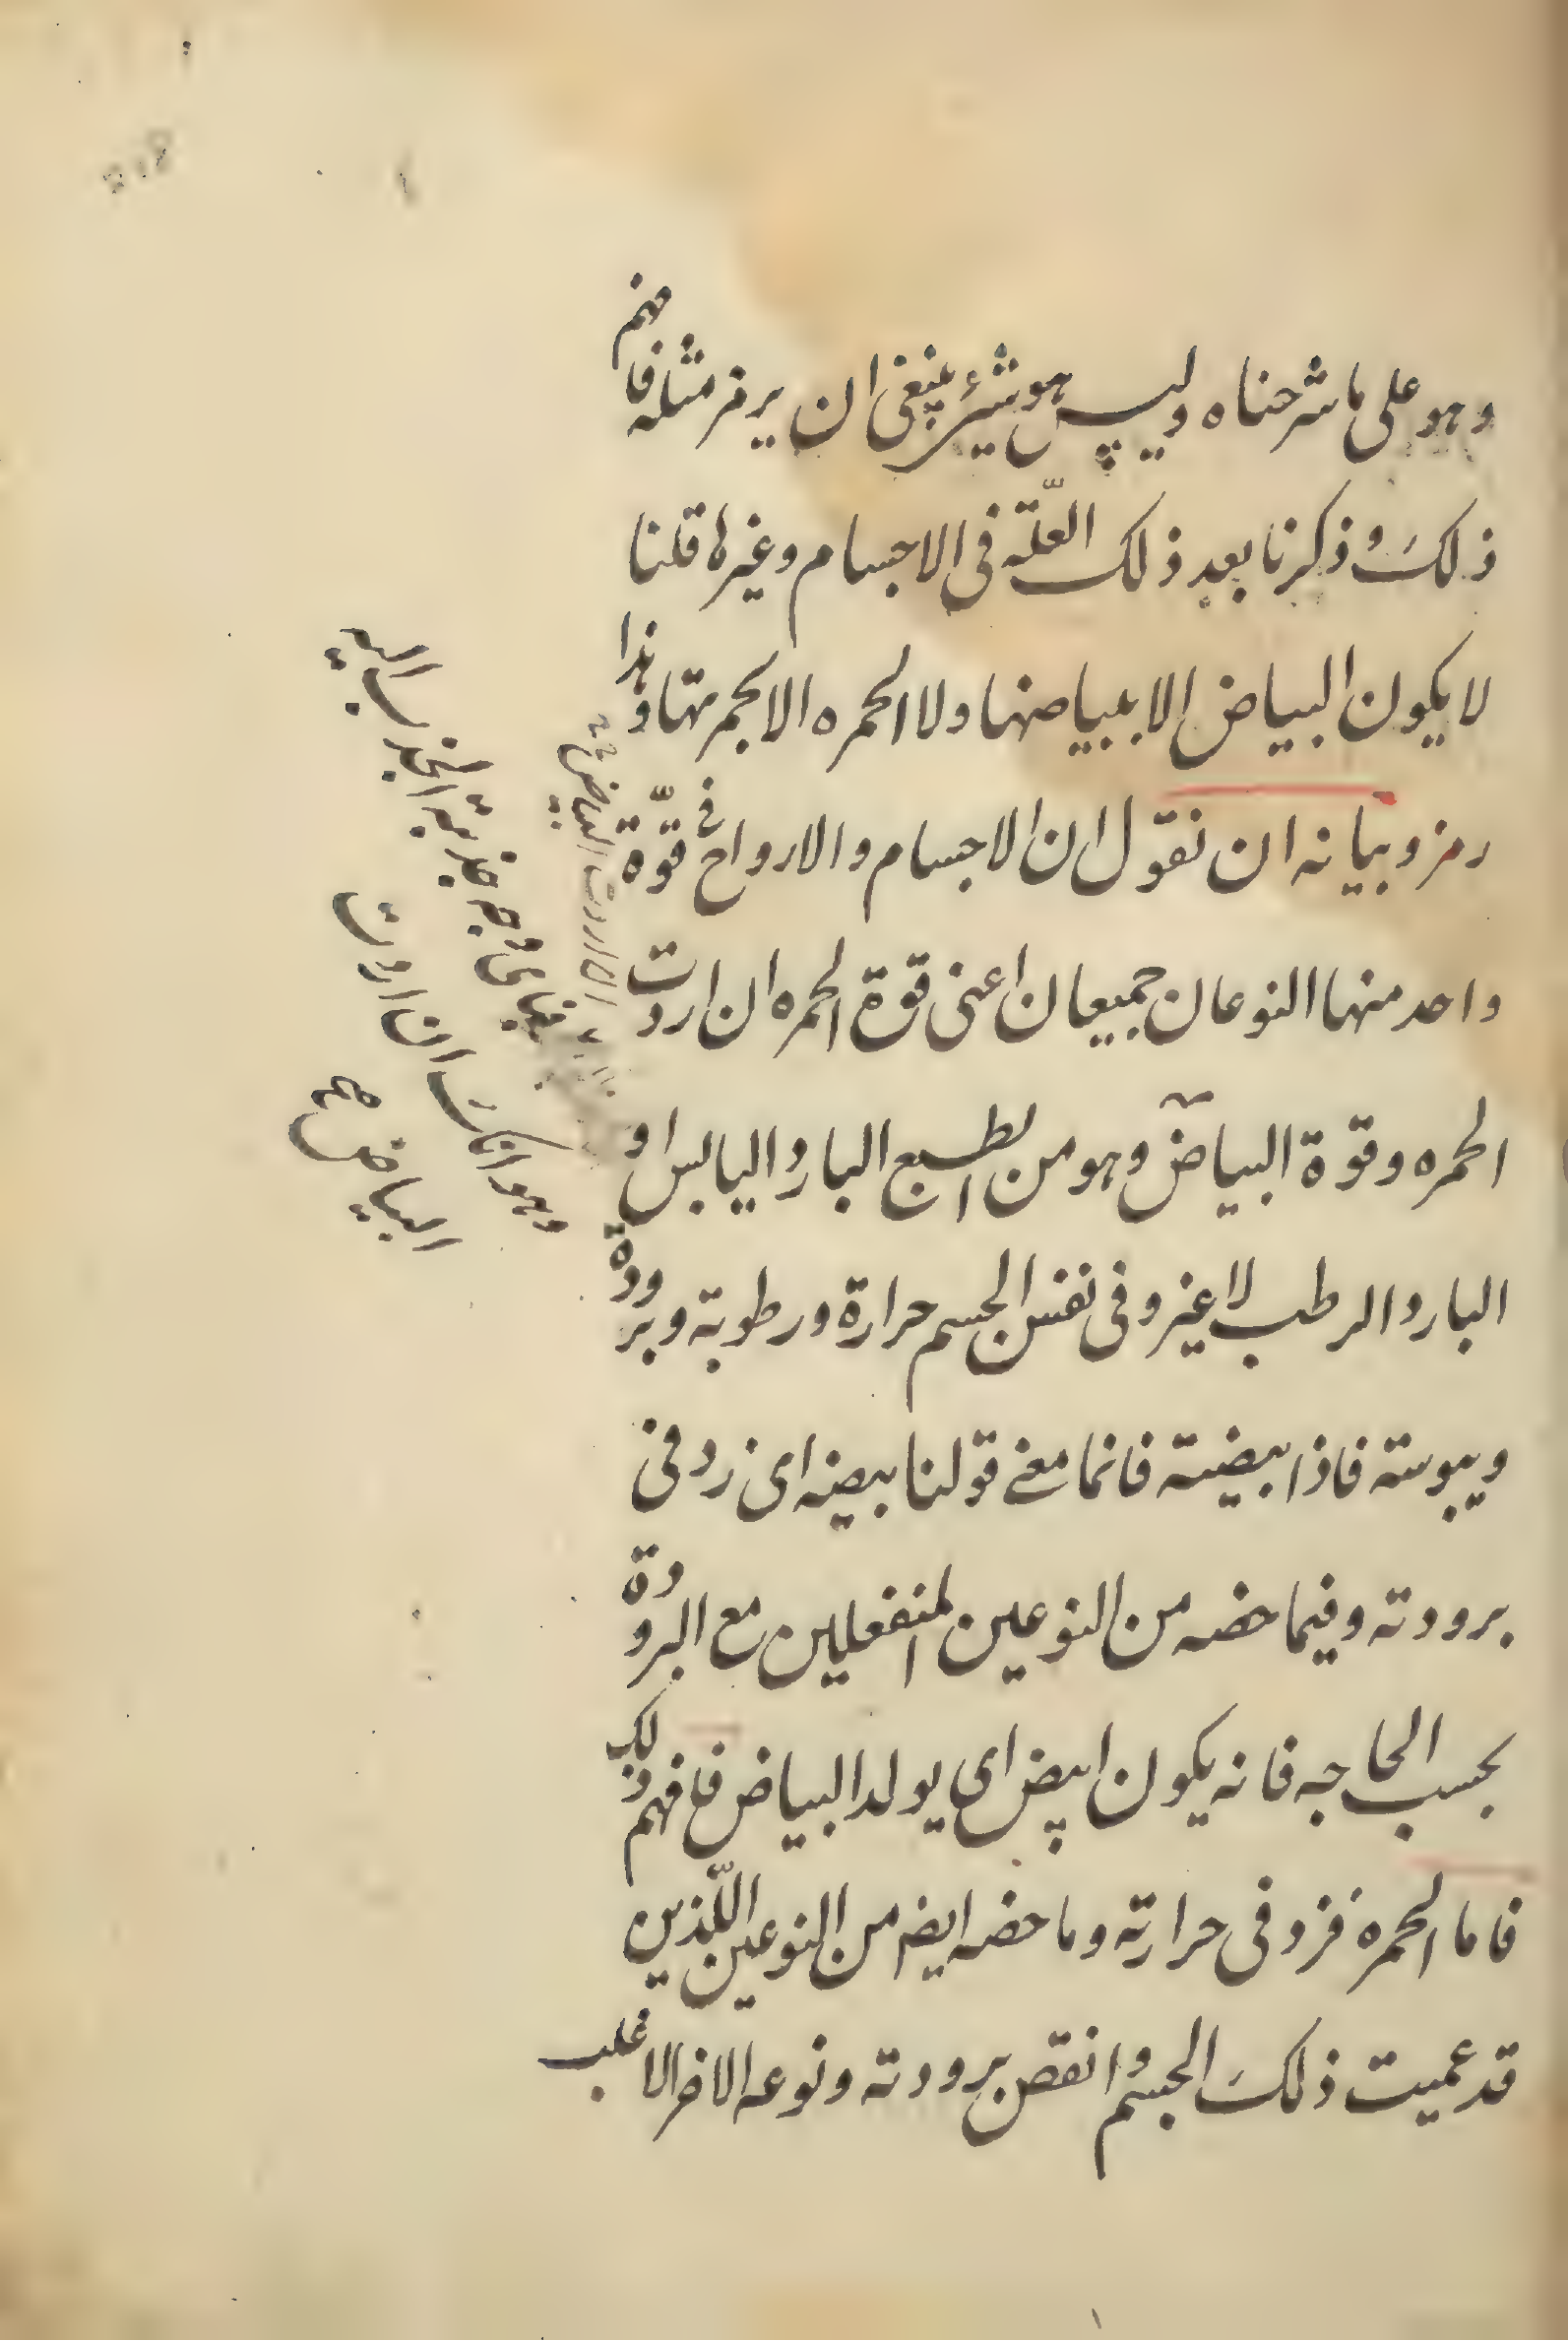 وهو على ما شرحناه وليس هو شئ ينبغى ان يرمز مثله فافهم
ذلك وذكرنا بعد ذلك العلّة فى الاجسام وغيرها قلنا
لا يكون البياض الا ببياضها ولا الحمره الا بحمرتها وهذا
رمز وبيانه ان نقول ان الاجسام والارواح فى قوّة
واحد منها النوعان جميعا ان اعنى قوة الحمره ان اردت
الحمره وقوة البياض وهو من الطبع البارد اليابس او
البارد الرطب لا غير وفى نفس الجسم حرارة ورطوبة وبرودة
ويبوسته فاذا بيضته فانما معنى قولنا بيضه اى زد فى
برودته وفيما خصه من النوعين المنفعلين مع البرودة
بحسب الحاجه فانه يكون ابيض اى يولد البياض فافهم ذلك
فاما الحمرة فزد فى حرارته وما خصه ايضا من النوعين اللّذين
قد عميت ذلك الجسم وانقص برودته ونوعه الاخر الاغلب
وهو انك ان اردت
البياض صح